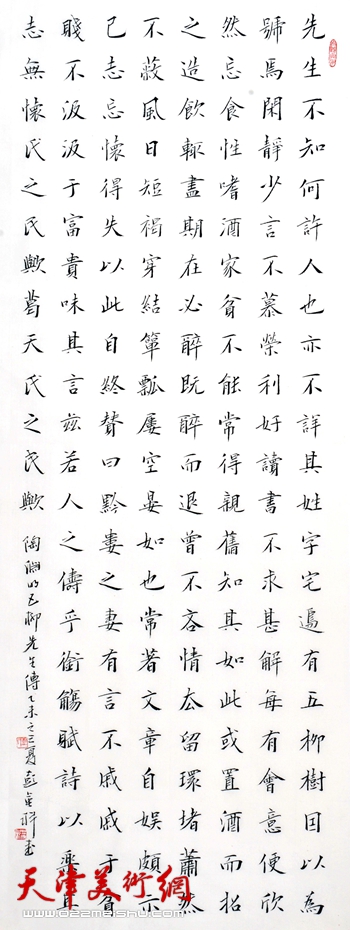 先生不知何許人也亦不詳其姓字宅邊有五柳樹因以為
號焉閑靜少言不慕榮利好讀書不求甚解每有會意便欣
然忘食性嗜酒家貧不能常得親舊知其如此或置酒而招
之造飲輒盡期在必醉既醉而退曾不吝情去留環堵蕭然
不蔽風日短褐穿結簞瓢屢空晏如也常著文章自娛頗示
己志忘懷得失以此自終贊曰黔婁之妻有言不戚戚于貧
賤不汲汲于富貴味其言茲若人之儔乎銜觴賦詩以樂其
志無懷氏之民歟葛天氏之民歟 陶淵明五柳先生傳乙未之夏
天津美術網
www.022meishu.com